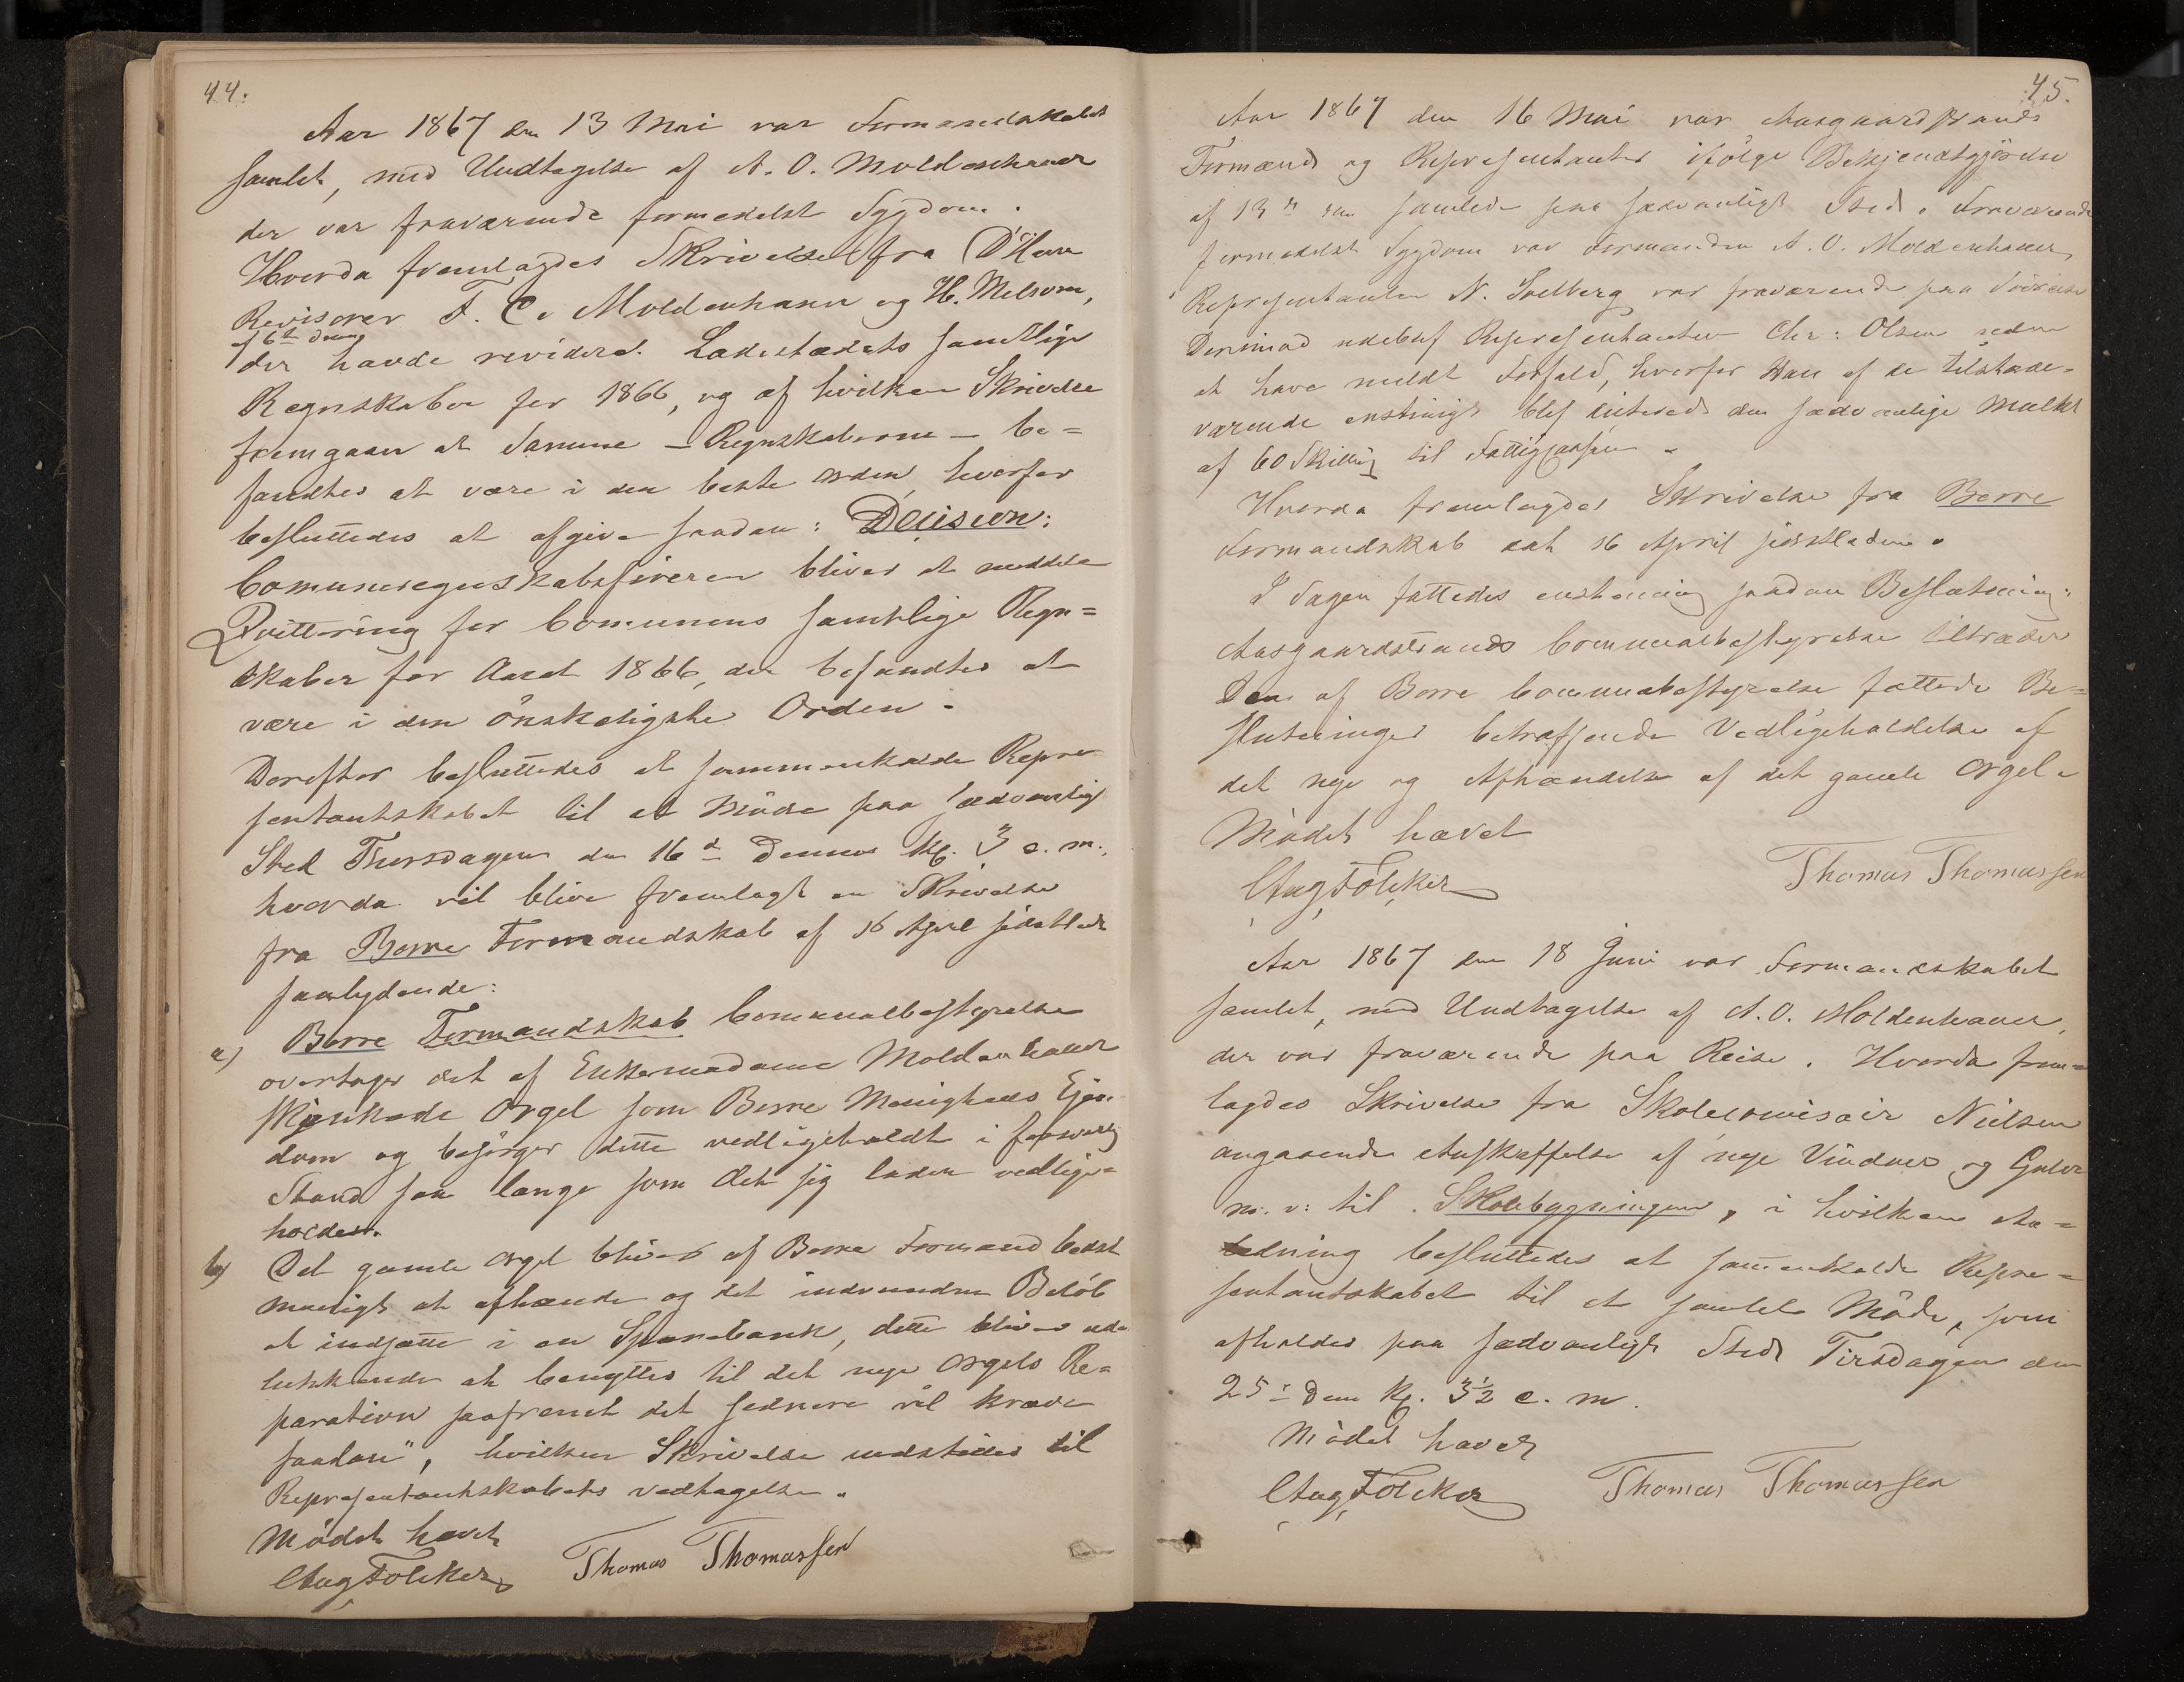 44.
Aar 1867 den 13 Mai var Formandskabet
samlet, med Undtagelse af A. O. Moldenhauer
der var fraværende formedelst Sygdom.
Hvorda fremlagdes Skrivelse fra D'Herr
Revisorer F. C. Moldenhauer og H. Melsom,
af 6te Dennes
der havde revideret Ladestædets samtlige
Regnskaber for 1866, og af hvilken Skrivelse
fremgaar at Samme – Regnskaberne – be=
fandtes at være i den beste Orden, hvorfor
besluttedes at afgive saadan: Desision:
Comuneregnskabsføreren bliver at meddele
Qvittering for Comunens samtlige Regn=
skaber for Aaret 1866, der befandtes at
være i den ønskeligste Orden.
Derefter besluttedes at sammenkalde Repræ
sentantskabet til et Møde paa sædvanligt
Sted Thorsdagen den 16d Dennes Kl. 3 e. m.,
hvorda vil blive fremlagt en Skrivelse
fra Borre Formandskab af 16 April sidstleden
saalydende:
a) Borre Formandskab Comunalbestyrelse
overtager det af Enkemadame Moldenhauer
skjenkede Orgel som Borre Menigheds Ejen
dom og besørger dette vedligeholdt i forsvarlig
Stand saa længe som det sig lader vedlige=
holdes.
b) Det gamle Orgel bliver af Borre Formand bedst
mueligt at afhænde og det indvundne Beløb
at indsætte i en Sparebank, dette bliver ude
lukkende at benyttes til det nye Orgels Re=
paration saafremt det sednere vil kræve
saadan", hvilken Skrivelse indstilles til
Representantskabets vedtagelse.
Mødet hævet
Aug Fölcker Thomas Thomassen
45.
Aar 1867 den 16 Mai var Aasgaardstrands
Formænd og Representanter ifølge Bekjendtgjørelse
af 13de ds samlede paa sædvanligt Sted. Fraværende
formedelst Sygdom var Formanden A. O. Moldenhauer,
Representanten N. Solberg var fraværende paa Søreise
Derimod udeblef Representanten Chr: Olsen uden
at have meldt Forfald, hvorfor Han af de tilstede=
værende enstimigt blef ilitered den sædvanlige Mulkt
af 60 Skilling til Fattigkassen.
Hvorda fremlagdes Skrivelse fra Borre
Formandskab dat 16 April sidstleden.
I Sagen fattedes enstemmig saadan Beslutning:
Aasgaardstrands Comunalbestyrelse tiltræder
Den af Borre Comunebestyrelse fattede Be=
slutninger betræffende Vedligeholdelse af
det nye og Afhændelse af det gamle Orgel.
Mødet hævet
Aug Fölcker Thomas Thomassen
Aar 1867 den 18 Juni var Formandskabet
samlet, med Undtagelse af A. O. Moldenhauer,
der var fraværende paa Reise. Hvorda frem=
lagdes Skrivelse fra Skolecomisair Nielsen
angaaende Anskaffelse af nye Vinduer og Gulve
m. v: til Skolebygningen, i hvilken An=
ledning besluttedes at sammenkalde Repræ=
sentantskabet til et samlet Møde, som
afholdes paa sædvanligt Sted Tirsdagen den
25de dens Kl. 3½ e. m.
Mødet hævet
Aug Fölcker Thomas Thomassen